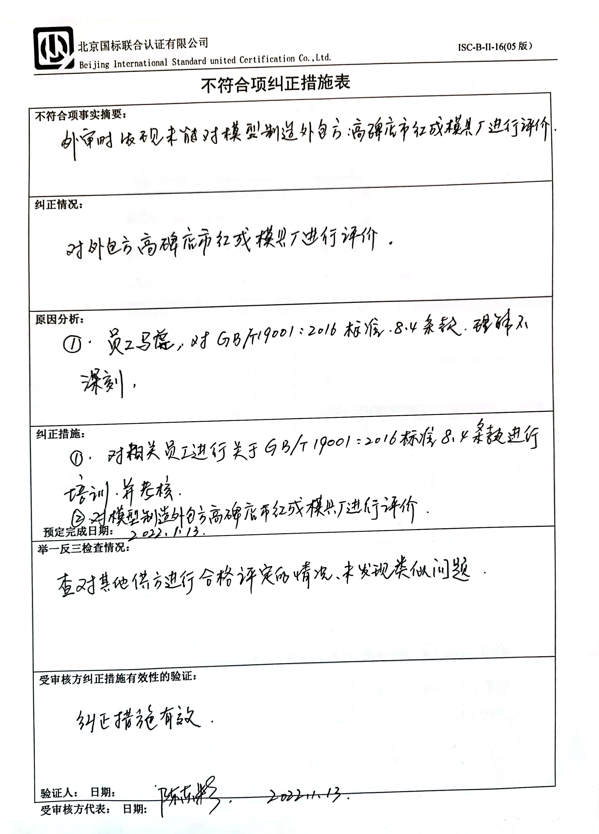 北京国标联合认证有限公司
Beijing International Standard united Certification Co.,Ltd.
ISC-B-II-16(05 版)
不符合项纠正措施表
不符合项事实摘要：
外审时发现未能对模型制造外包方：高碑店市红成模具厂进行评价.
纠正情况：
对外包方高碑店市红成模具厂进行评价.
原因分析：
①. 员工马蕊，对 GB/T19001:2016 标准.8.4条款.理解不
深刻.
纠正措施：
①. 对相关员工进行关于GB/T 19001:2016标准8.4条款进行
培训.并考核.
②.对模型制造外包方高碑店市红成模具厂进行评价.
预定完成日期： 2022.1.13.
举一反三检查情况：
查对其他供方进行合格评定的情况、未发现类似问题.
受审核方纠正措施有效性的验证：
纠正措施有效.
验证人： 日期： 2022.1.13
受审核方代表： 日期：